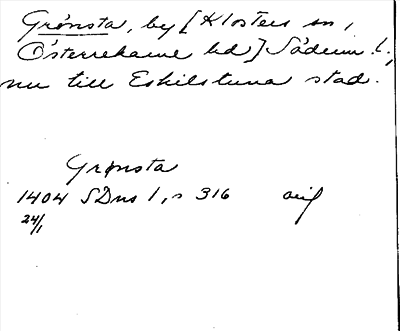 Grönsta, by [Klosters sn,
Österrekarne hd] Söderm. l.,
nu till Eskilstuna stad.
Grønsta
1404 SDns 1, s 316 avs
24/1